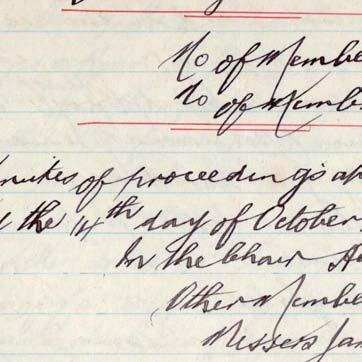 No of Membe
No of Memb
inutes of proceedings ap
d the 14th day of October
In the Chair
Other Membe
Messrs Jam